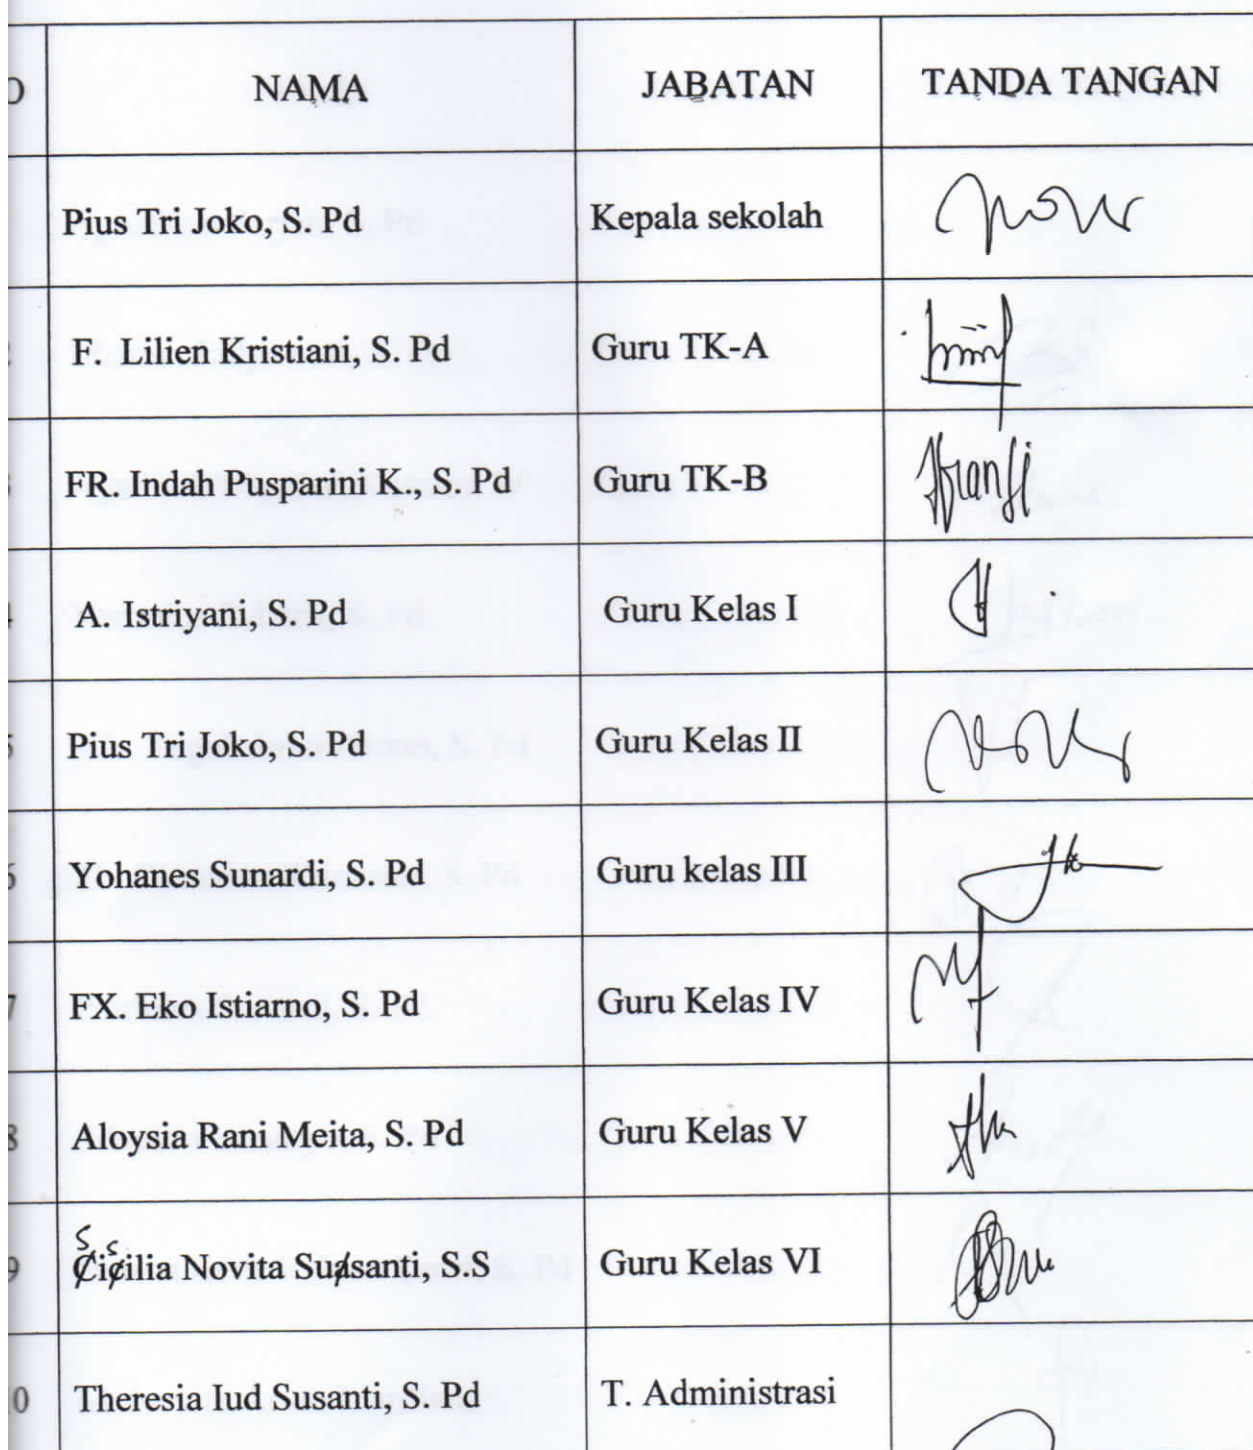 NAMA JABATAN TANDA TANGAN
Pius Tri Joko, S. Pd Kepala sekolah
F. Lilien Kristiani, S. Pd Guru TK-A
FR. Indah Pusparini K., S. Pd Guru TK-B
4 A. Istriyani, S. Pd Guru Kelas I
5 Pius Tri Joko, S. Pd Guru Kelas II
6 Yohanes Sunardi, S. Pd Guru kelas III
7 FX. Eko Istiarno, S. Pd Guru Kelas IV
8 Aloysia Rani Meita, S. Pd Guru Kelas V
s s
9 Cicilia Novita Sussanti, S.S Guru Kelas VI
0 Theresia Iud Susanti, S. Pd T. Administrasi